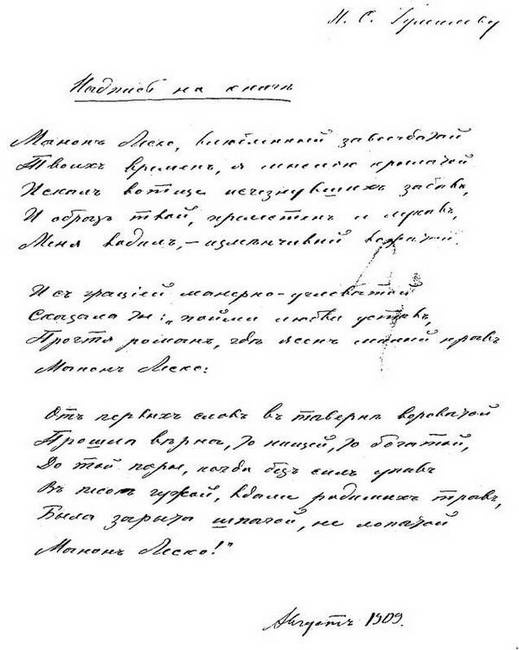 Н. С. Гумилеву
Надпись на книгѣ
Манонъ Леско, влюбленный завсегдатай
Твоихъ временъ, я мыслію крылатой
Искалъ вотще исчезнувшихъ забавъ,
И образъ твой, прелестенъ и лукавъ,
Меня водилъ, – измѣнчивый вожатый.
И съ граціей манерно-угловатой
Сказала ты: „пойми любви уставъ,
Прочтя романъ, гдѣ ясенъ милый нравъ
Манонъ Леско:
Отъ первыхъ словъ въ тавернѣ вороватой
Прошла вѣрна, то нищей, то богатой,
До той поры, когда безъ силъ упавъ
Въ песокъ чужой, вдали родимыхъ травъ,
Была зарыта шпагой, не лопатой
Манонъ Леско!"
Августъ 1909.